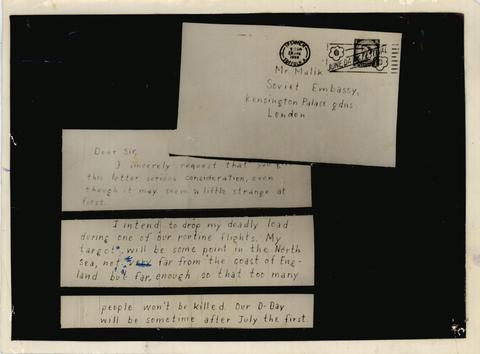 Mr. Malik
Soviet Embassy,
Kensington Palace gdns.
London
Dear Sir,
I sincerely request that you
this letter serious consideration, even
though it may seem a little strange at
first.
I intend to drop my deadly load
during one of our routine flights. My
target will be some point in the North
Sea, not far from the coast of Eng-
land but far enough so that too many
people won't be killed. Our D-Day
will be sometime after July the first.